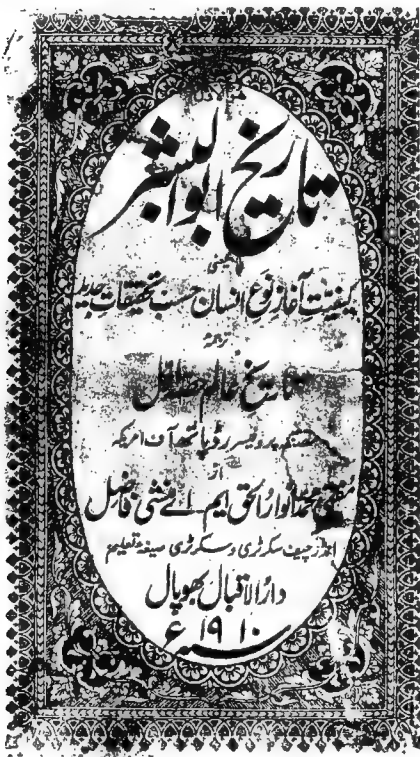 تاریخ ابوالبشر
یعنی
کیفیت آغاز نوع انسان حسب تحقیقات جدید
ترجمہ
تاریخ عالم حصہ اول
مصنفہ پروفیسر رڈپاتھ آف امریکہ
از
مفتی محمد انوارالحق ایم۔اے منشی فاضل
چیف سکرٹری و سکرٹری صیغہ تعلیم
دارالاقبال بھوپال
۱۹۱۰ء